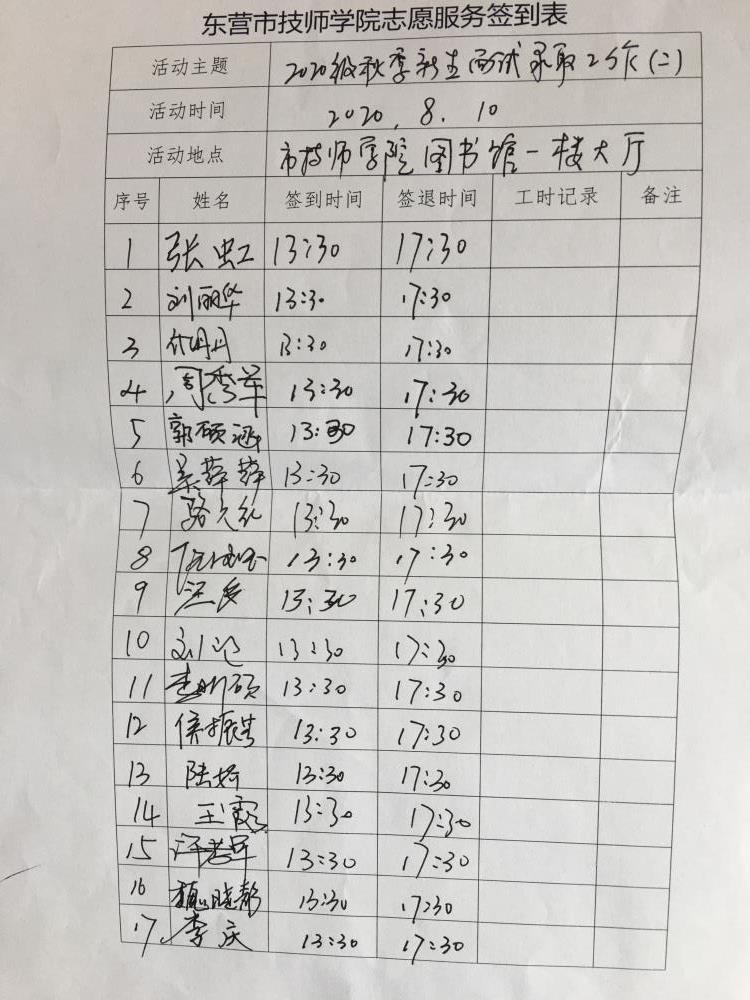 东营市技师学院志愿服务签到表
活动主题 2020级秋季新生面试录取工作(二)
活动时间 2020.8.10
活动地点 市技师学院图书馆一楼大厅
序号 姓名 签到时间 签退时间 工时记录 备注
1 张虹 13:30 17:30
2 刘丽华 13:30 17:30
3 13:30 17:30
4 周秀军 13:30 17:30
5 郭硕涵 13:30 17:30
6 13:30 17:30
7 13:30 17:30
8 13:30 17:30
9 13:30 17:30
10 刘 13:30 17:30
11 13:30 17:30
12 侯振 13:30 17:30
13 陆娇 13:30 17:30
14 王霞 13:30 17:30
15 13:30 17:30
16 魏晓静 13:30 17:30
17 李庆 13:30 17:30